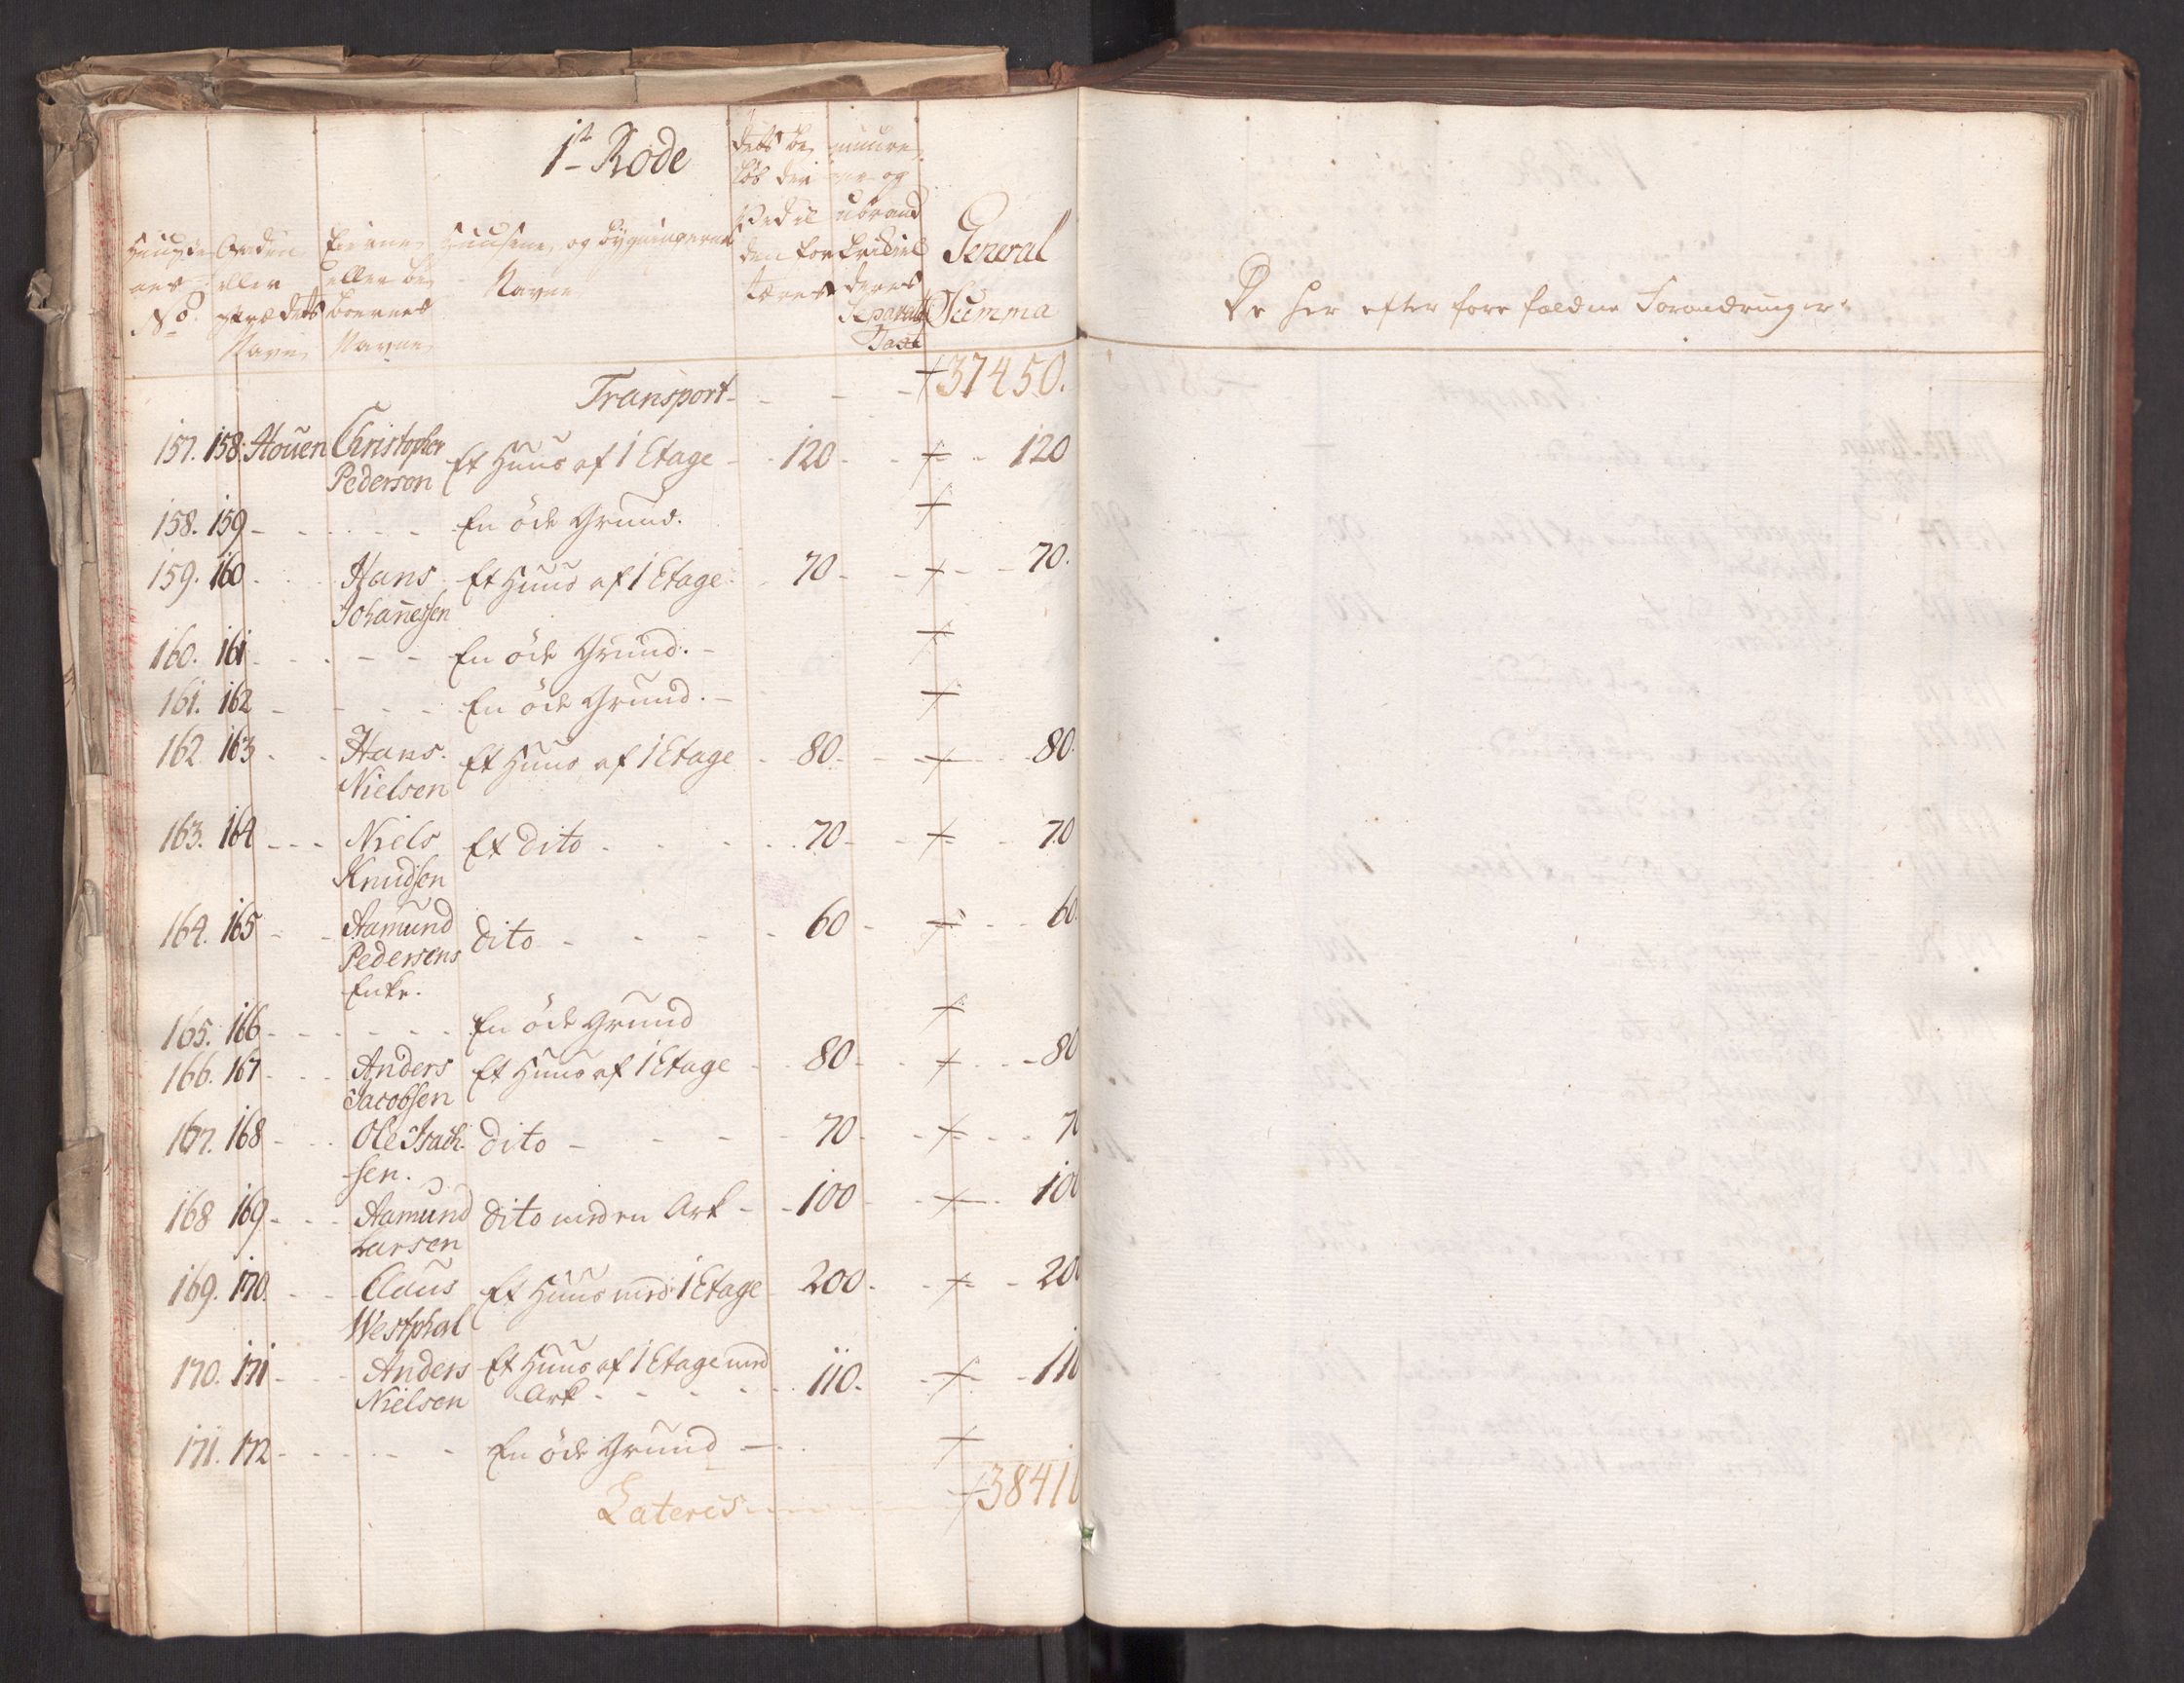 1st Rode
Huuse
nes
No
Gaden
eller
strædets
Navn
Eiernes
eller be
boernes
Navne
Huusene og Bygningernes
Navne
dets be
løb der
ved il
den for
tæres
muure
ne og
ubrand
friehed
deres
Separate
Taxt
General
Summa
Transport - - - 37450.
157. 158. Houen Christopher Et Huus af 1 Etage - 120 - - 120
Pederson
158. 159 - - - - En öde Grund.
159. 160 - - Hans Et Huus af 1 Etage - 70 - - 70.
Johanessen
160. 161 - - - - En öde Grund. -
161. 162 - - - - En öde Grund. -
162. 163 - - Hans Et Huus af 1 Etage - 80 - - 80.
Nielsen
163. 164 - - - Niels Et dito - - - 70 - - 70
Knudsen
164. 165 - - Aamund dito - - - - 60 - - 60.
Pedersens
Enke.
165. 166 - - - - En öde Grund
166. 167 - - - Anders Et Huus af 1 Etage - - 80 - - 80
Jacobsen
167. 168 - - Ole Isach- dito - - - - 70 - - 70
sen.
168 169 - - - Aamund dito med en Ark - - 100 - - 100
Larsen
169. 170. - - Claus Et Huus med 1 Etage - 200 - - 200
Westphal
170. 171 - - - Anders Et Huus af 1 Etage med 110. - - 110
Nielsen Ark - - - -
171. 172 - - - - En öde Grund -
Lateris - - - 38410
De her efter fore faldne Forandringer.